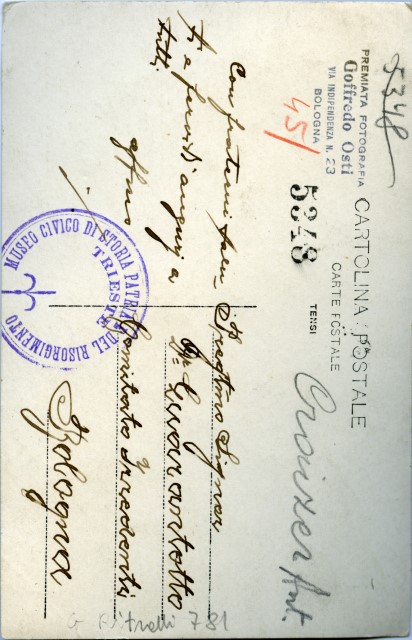 5348
PREMIATA FOTOGRAFIA
Goffredo Osti
VIA INDIPENDENZA N. 23
BOLOGNA
45/
5348
CARTOLINA POSTALE
CARTE POSTALE
TENSI
Croizer Ant.
Con fraterni
e fervidi auguri a
tutti
affmo
MUSEO CIVICO DI STORIA PATRIA
TRIESTE
DEL RISORGIMENTO
Signor
Guarantotto
Comitato Irredenti
Bologna
781